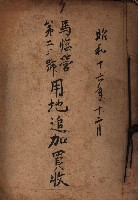 昭和十六年十二月
馬臨營
第二六號
用地追加買收